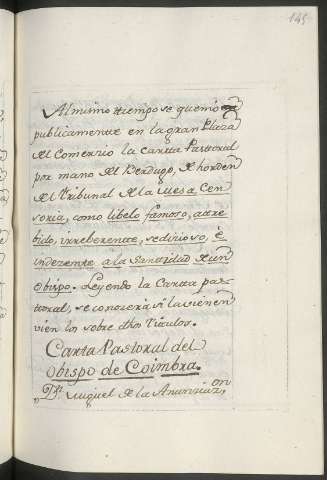 145
Al mismo tiempo se quemó
publicamente en la gran Plaza
del Comercio la Cartta Pastoral
por mano del Berdugo, de horden
del Tribunal de la Mesa Cen
soria, como libelo famoso, attre
bido, irreberente, sedizioso, è
indezente à la Santidad de un
Obispo. Leyendo la Cartta pas-
toral, se conocerá si la vienen
vien los sobre dhos títulos.
Carta Pastoral del
Obispo de Coimbra.
Dn. Miguel de la Anunziazon